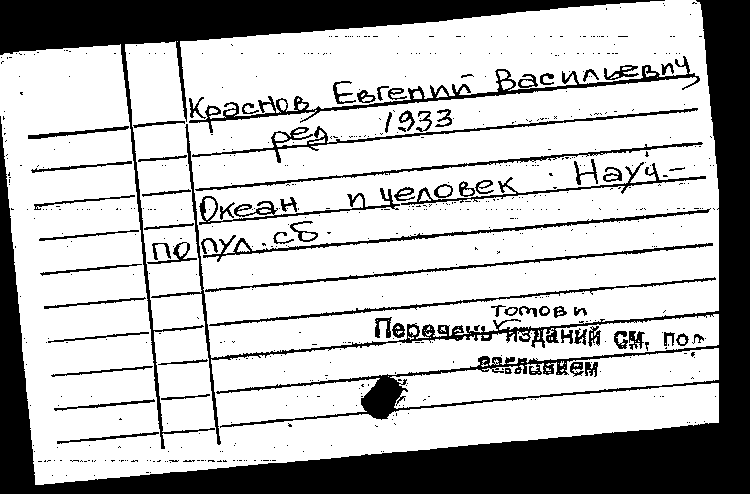 Краснов, Евгений Васильевич,
ред. 1933
Океан и человек : Науч.-
попул. сб.
томов и
Перечень изданий см. под
заглавием